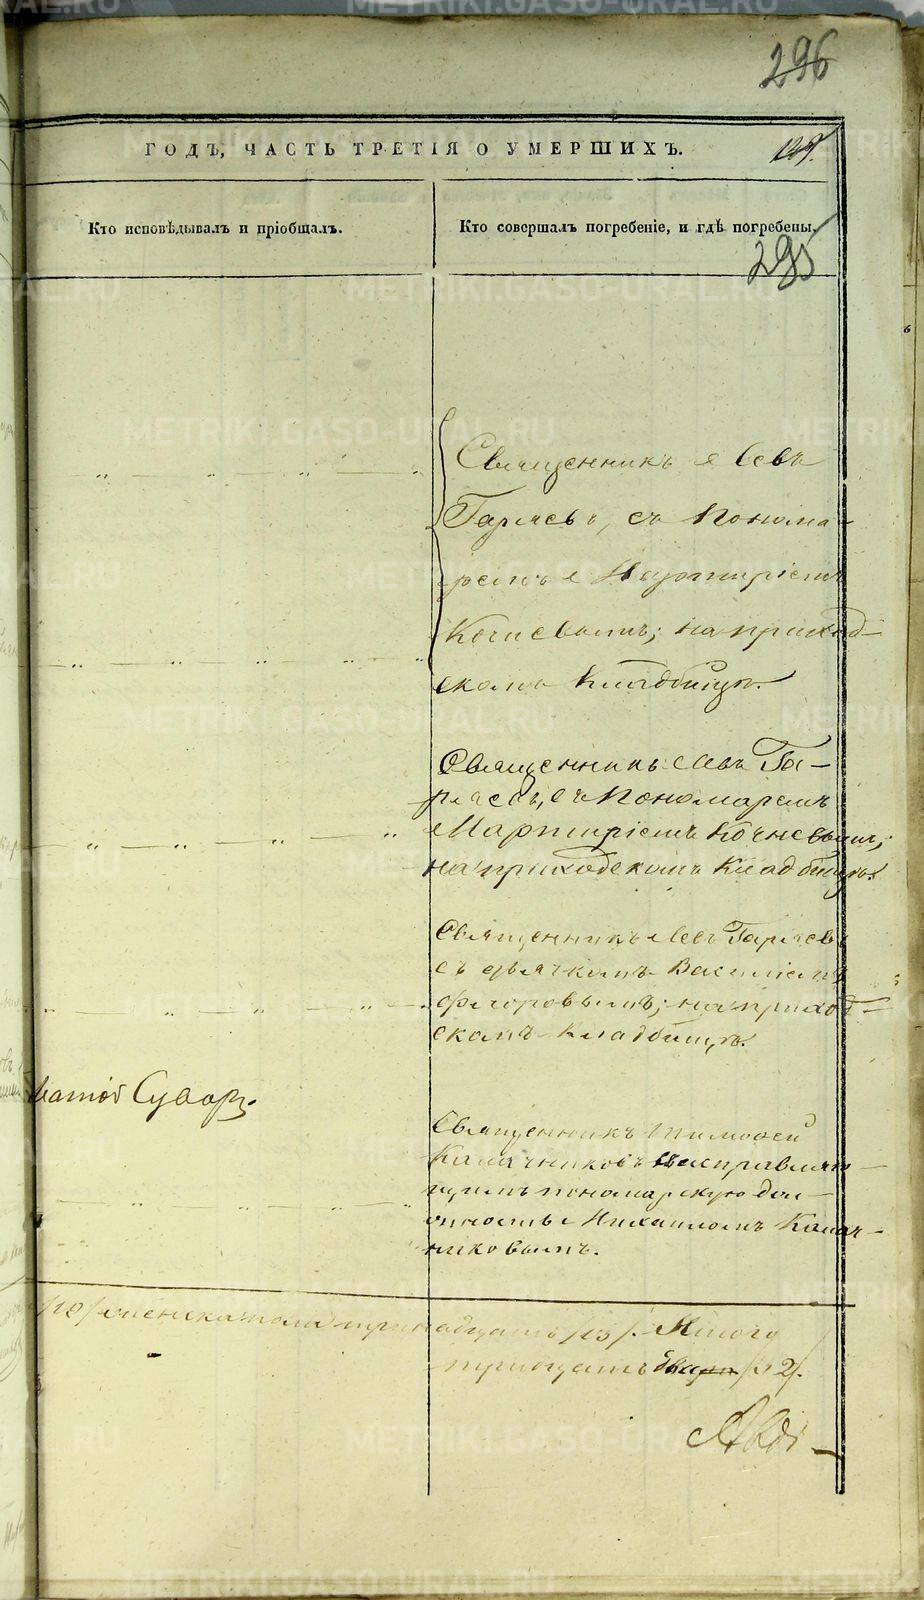 296
ГОДЪ, ЧАСТЬ ТРЕТІЯ О УМЕРШИХЪ.
Кто исповѣдывалъ и пріобщалъ.
Кто совершалъ погребеніе, и гдѣ погребены.
295
Священникъ Левъ
Гаряевъ, съ Понома-
ремъ Мартиріемъ
Кочневымъ; на приход-
скомъ кладбищѣ.
Священникъ Левъ Га-
ряевъ, съ Пономаремъ
Мартиріемъ Кочневымъ;
на приходскомъ кладбищѣ.
Священникъ Левъ Гаряевъ
съ дьячкомъ Василіемъ
Флоровымъ; на приход-
скомъ кладбищѣ.
Сувор
Священникъ Тимофей
Калачниковъ съ исправляю-
щимъ пономарскую дол-
жность Михаиломъ Калач-
никовымъ.
женска пола тринадцать /13/. Итого
тридцать два /32/.
METRIKI.GASO-URAL.RU